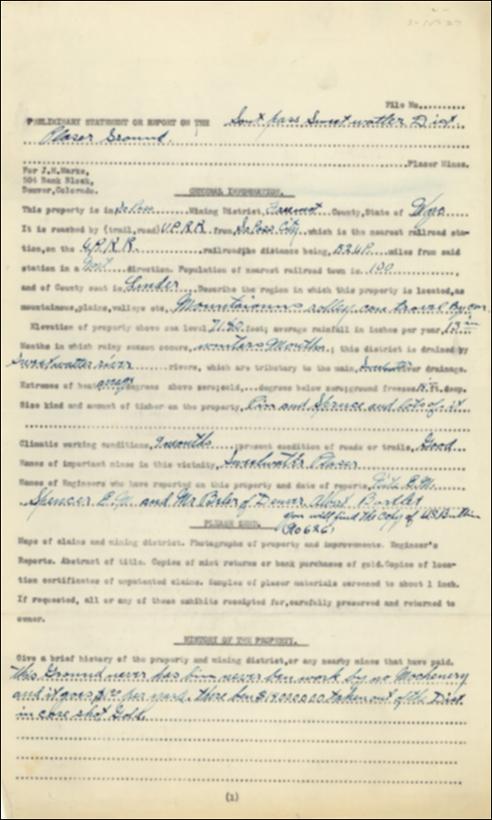 File No..........
PRELIMINARY STATEMENT OR REPORT ON THE South pass Sweet watter Dist.
Plaser Ground.
Placer Mines.
For J.H.Marks,
504 Bank Block,
Denver,Colorado.
GENERAL INFORMATION.
This property is in Mining District, Freemont County,State of Wyo
It is reached by (trail,road) U.P.R.R. from City which is the nearest railroad sta-
tion,on the U.P.R.R. railroad;the distance being, miles from said
station in a direction. Population of nearest railroad town is 150
and of County seat is Lander Describe the region in which this property is located,as
mountainous,plains,valleys etc. Mountainous rolley can travel By car
Elevation of property above sea level feet; average rainfall in inches per year,
Months in which rainy season occurs, winters Months.; this district is drained by
Sweetwatter river rivers, which are tributary to the main, river drainage.
Extremes of heat degrees above zero;cold,...degrees below zero;ground freezes ft.deep.
Size kind and amount of timber on the property, Pine and Spruce and lots of it
Climatic working conditions, 9 months present condition of roads or trails, Good
Names of important mines in this vicinity, Sweetwatter Plaser
Names of Engineers who have reported on this property and date of reports, E.M.
Spencer E.M. and Mr of Denver
you will find the Copy of U.S.
PLEASE SEND.
Maps of claims and mining district. Photographs of property and improvements. Engineer's
Reports. Abstract of title. Copies of mint returns or bank purchases of gold.Copies of loca-
tion certificates of unpatented claims. Samples of placer materials screened to about 1 inch.
If requested, all or any of these exhibits receipted for,carefully preserved and returned to
owner.
HISTORY OF THE PROPERTY.
Give a brief history of the property and mining district,or any nearby mines that have paid.
this Ground never has bin never ben work by no Mochenery
and it goes per yard. there ben taken out of the Dist
in core shot Gold.
(1)